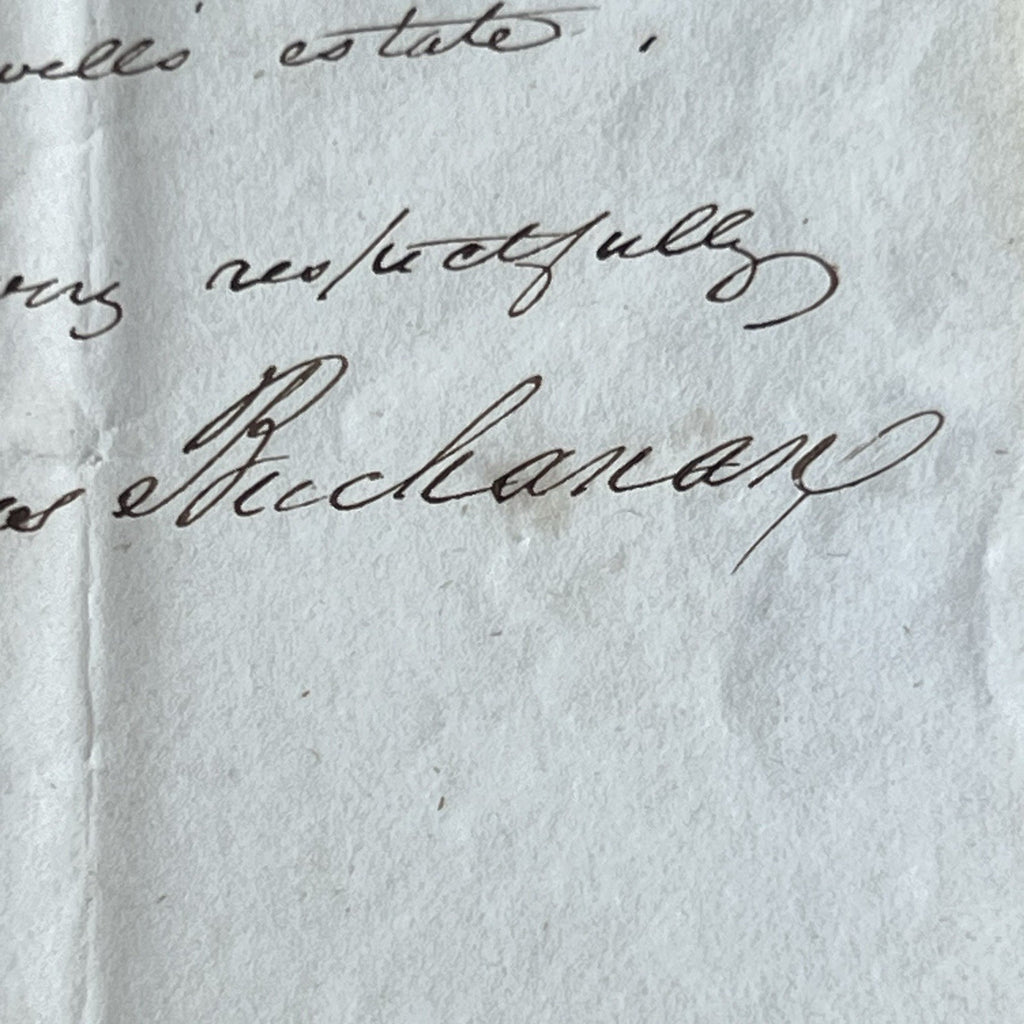 wells estate.
very respectfully
es Buchanan